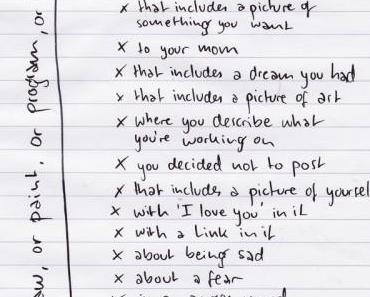 x that includes a picture of
something you want
x to your mom
x that includes a dream you had
x that includes a picture of art
x where you describe what
you're working on
x you decided not to post
x that includes a picture of yoursel
x with 'I love you' in it
x with a link in it
x about being sad
x about a fear
w, or paint, or program, or